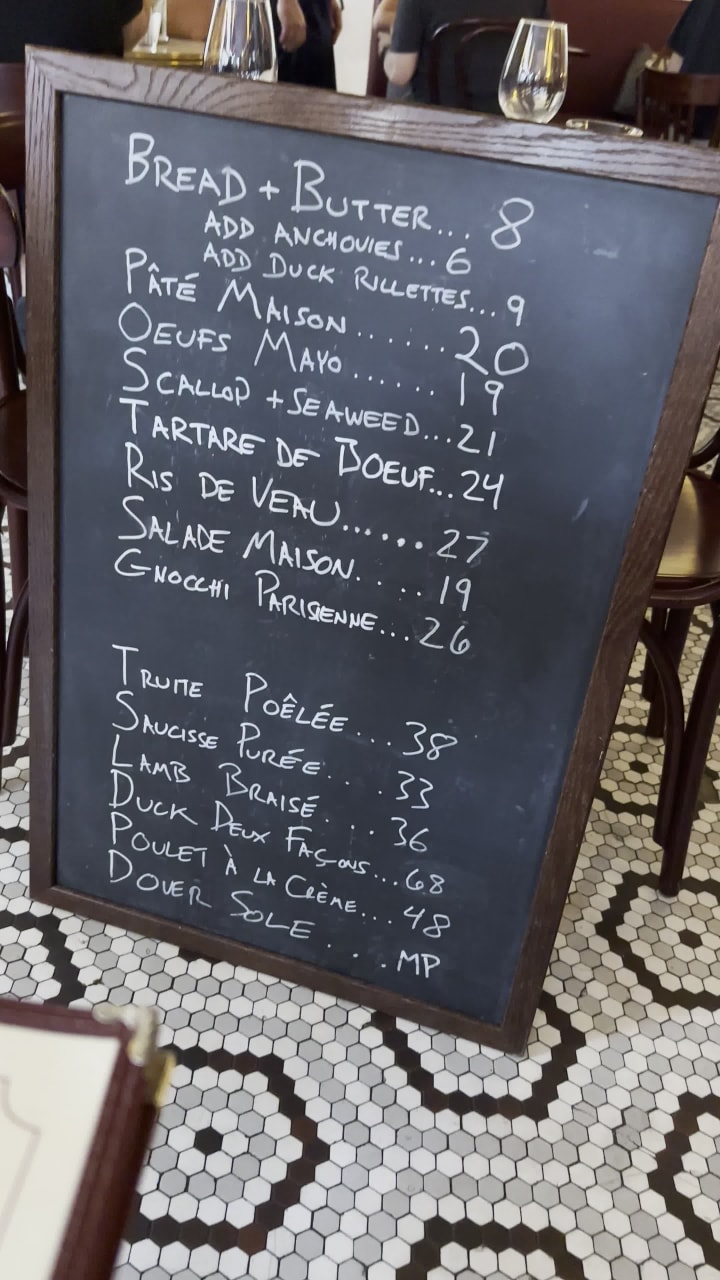 BREAD + BUTTER... 8
ADD ANCHOVIES... 6
ADD DUCK RILLETTES... 9
PÂTÉ MAISON....... 20
OEUFS MAYO...... 19
SCALLOP + SEAWEED... 21
TARTARE DE BOEUF... 24
RIS DE VEAU...... 27
SALADE MAISON..... 19
GNOCCHI PARISIENNE... 26
TRUITE POÊLÉE... 38
SAUCISSE PURÉE.... 33
LAMB BRAISÉ.... 36
DUCK DEUX FAÇONS... 68
POULET À LA CRÈME... 48
DOVER SOLE.... MP